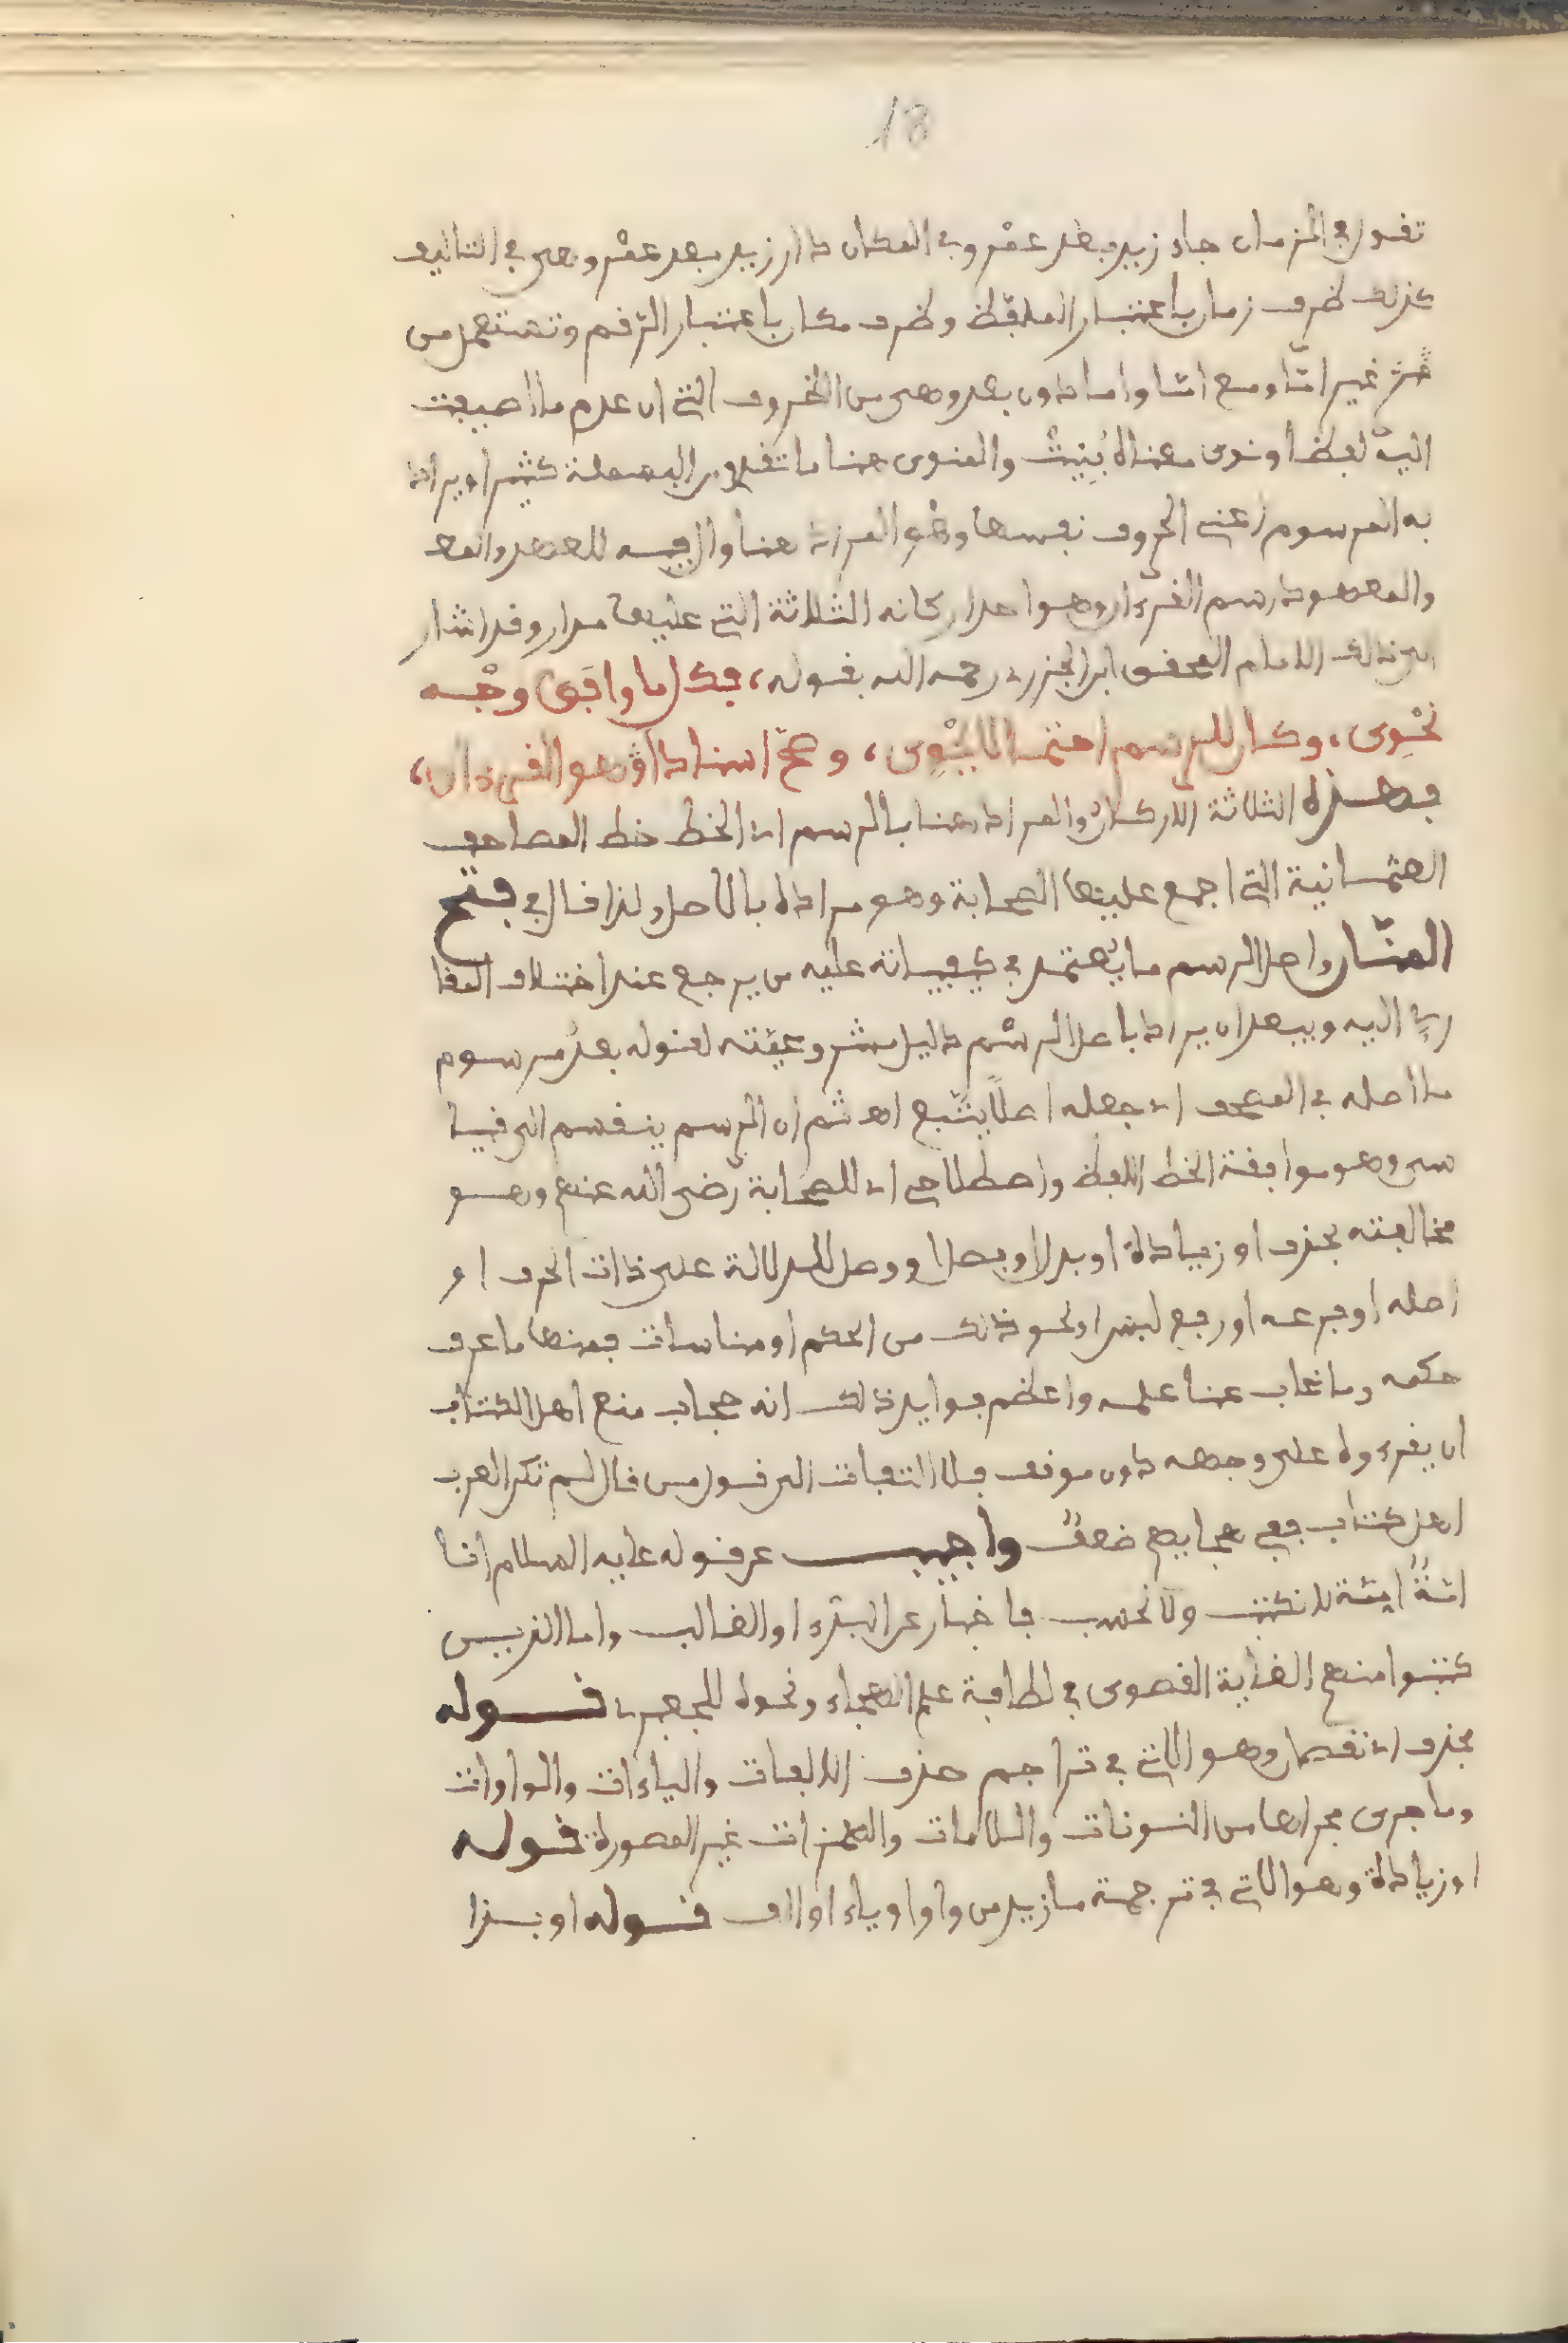 18
تقول في الزمان جاء زيد بعد عمرو وفي المكان دار زيد بعد عمرو وهي في التأليف
كذلك ظرف زمان باعتبار الملفظ وظرف مكان باعتبار الرقم وتستعمل من
غير امّا ومع امّا واما دون بعد وهي من الظروف التي ان عدم ما اضيفت
اليه لفظا ونوى معناه بُنِيتْ والمنوى هنا ما تقدم من البسملة كثيرا ويراد
به المرسوم اعني الحروف نفسها وهو المراد هنا وال فيه للعهد والمعـ
والمعهود رسم القرءان وهو احد اركانه الثلاثة التي عليها مدار وقد اشار
الى ذلك الامام المحقق ابن الجزري رحمه الله بقوله، فكل ما وافق وجه
نحوى، وكان للرسم احتمالا يحوى، وصحّ اسنادا وهو القرءان،
فهذه الثلاثة الاركان والمراد هنا بالرسم اي الخط خط المصاحف
العثمانية التي اجمع عليها الصحابة وهو مراده بالاصل ولذا قال في فتح
المنّان واصل الرسم ما يعتمد في كيفياته عليه من يرجع عند اختلاف المقا
ري اليه ويبعد ان يراد باصل الرسم دليل مشروعيته لقوله بعد مرسوم
ما اصله في المصحف اي جعله اصلا يتّبع اهـ ثم ان الرسم ينقسم الى قيا
سي وهو موافقة الخط اللفظ واصطلاحي اي للصحابة رضي الله عنهم وهو
مخالفته بحذف او زيادة او بدل او فصل او وصل للدلالة على ذات الحرف او
اصله او فرعه او رفع لبس او نحو ذلك من الحكم او مناسبات فمنها ما عرف
حكمه وما غاب عنا علمه واعظم فوايد ذلك انه حجاب منع اهل الكتاب
ان يقرءوه على وجهه دون موقف فلا التفات الى قول من قال لم تكن العرب
اهل كتاب ففي هجايهم ضعف واجيب عن قوله عليه السلام انا
امّة اميّة لا نكتب ولا نحسب باخبار عن البدء او الغالب واما الذين
كتبوا منهم الغاية القصوى في لطافة علم الهجاء ونحوه للجعبري قوله
بحذف اي نقصان وهو الاتي في تراجم حذف الالفات والياءات والواوات
وما جرى مجراها من النونات واللامات والهمزات غير المصورة قوله
او زيادة وهو الاتي في ترجمة ما زيد من واو او ياء او الف قوله او بذا